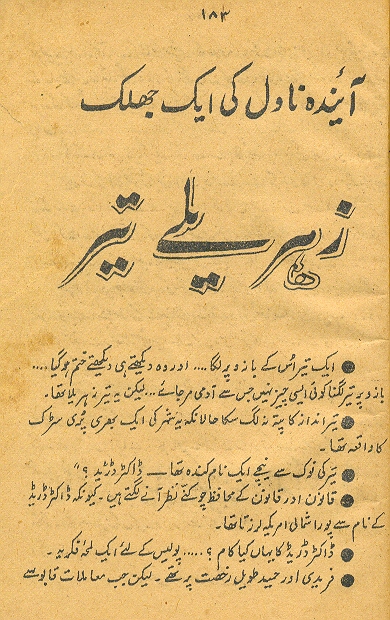 ۱۸۳
آئندہ ناول کی ایک جھلک
زہریلے تیر
● ایک تیر اُس کے بازو پر لگا .... اور وہ دیکھتے ہی دیکھتے ختم ہو گیا ....
بازو پر تیر لگنا کوئی ایسی چیز نہیں جس سے آدمی مر جائے ... لیکن یہ تیر زہریلا تھا۔
● تیر انداز کا پتہ نہ لگ سکا حالانکہ یہ شہر کی ایک بھری پُری سڑک
کا واقعہ تھا۔
● تیر کی نوک سے نیچے ایک نام کندہ تھا — ڈاکٹر ڈریڈ ؟"
● قانون اور قانون کے محافظ چوکنے نظر آنے لگتے ہیں۔ کیونکہ ڈاکٹر ڈریڈ
کے نام سے پورا شمالی امریکہ لرزتا تھا۔
● ڈاکٹر ڈریڈ کا یہاں کیا کام ؟ ..... پولیس کے لئے ایک لمحۂ فکریہ۔
● فریدی اور حمید طویل رخصت پر تھے۔ لیکن جب معاملات قابو سے